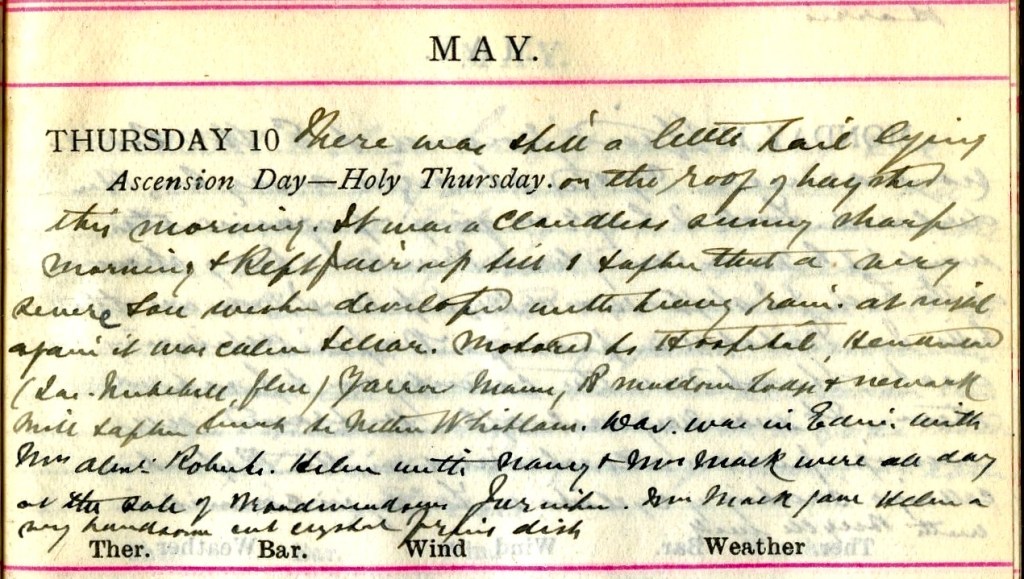 MAY.
THURSDAY 10 There was still a little hail lying
Ascension Day—Holy Thursday. on the roof of hay shed
this morning. It was a cloudless sunny sharp
morning & kept fair up till 1 & after that a very
severe developed with heavy rain. at night
again it was calm & clear. Motored to Hospital,
(Jas. Mitchell, flu) Yarrow Manse, Lodge & Newark
Mill & after lunch to Nether Whitlaw. Dav. was in Edin. with
Mrs Alex. Roberts. Helen with Nancy & Mrs Mack were all day
at the sale of furniture. Mrs Mack gave Helen a
very handsome cut crystal fruit dish
Ther. Bar. Wind Weather